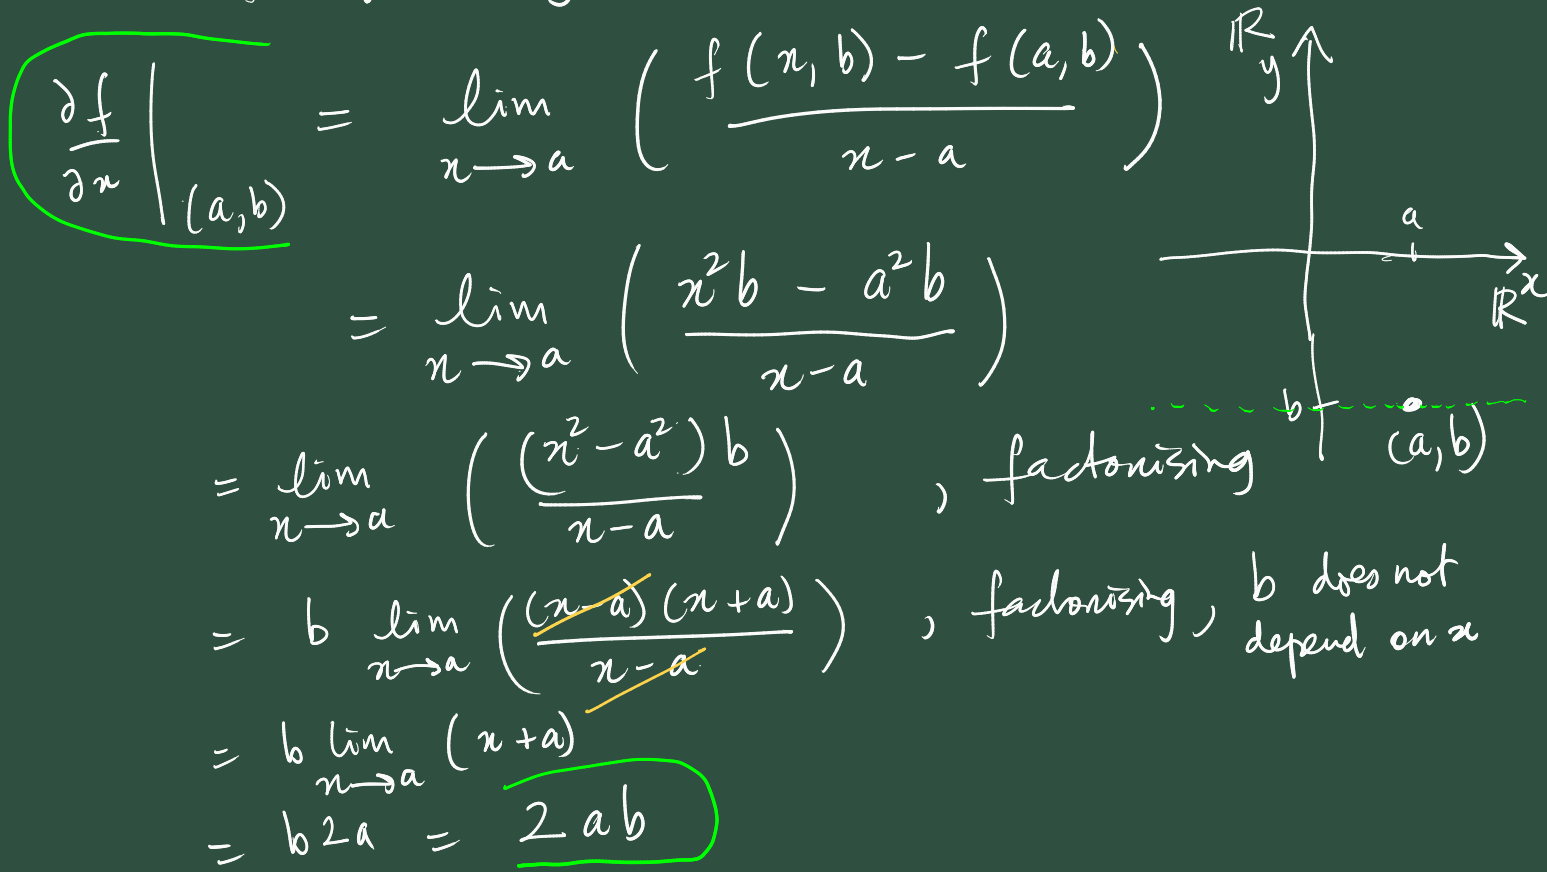 ∂f/∂x |(a,b) = lim x→a ( (f(x,b) − f(a,b)) / (x − a) )
= lim x→a ( (x²b − a²b) / (x − a) )
= lim x→a ( ((x² − a²) b) / (x − a) ) , factorising
= b lim x→a ( ((x − a)(x + a)) / (x − a) ) , factorising, b does not
depend on x
= b lim x→a (x + a)
= b 2a = 2ab
ℝ
y
a
ℝ x
b
(a,b)